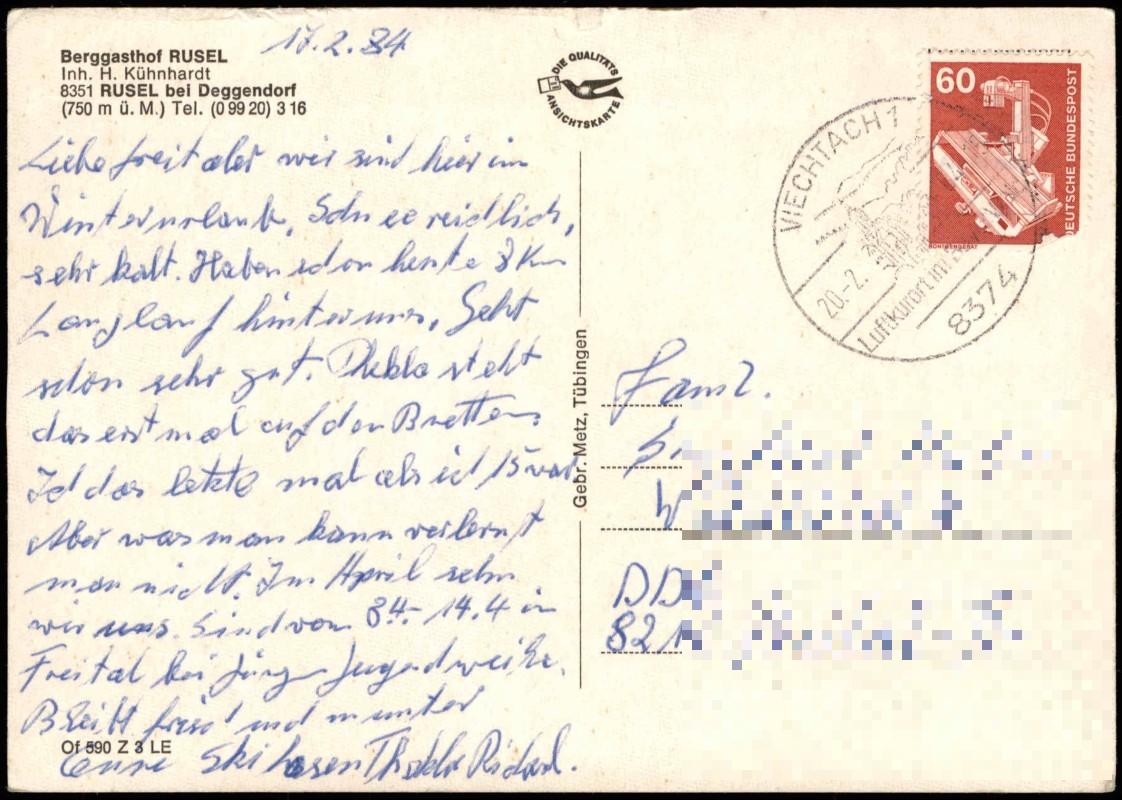 17.2.84
Berggasthof RUSEL
Inh. H. Kühnhardt
8351 RUSEL bei Deggendorf
(750 m ü. M.) Tel. (0 99 20) 3 16
DIE QUALITÄTS
ANSICHTSKARTE
60
DEUTSCHE BUNDESPOST
RÖNTGENGERÄT
VIECHTACH 1
20.-2.
Luftkurort im
8374
Liebe wir sind hier im
Winterurlaub. Schnee reichlich,
sehr kalt. Haben schon heute 8 Km
Langlauf hinter uns. Geht
schon sehr gut. Thekla steht
das erst mal auf den Brettern
Ich das letzte mal als ich 15 war.
Aber was man kann verlernt
man nicht. Im April sehn
wir uns. Sind vom 8.4.-14.4 in
Freital bei Jürgen Jugendweihe.
Bleibt frisch und munter
Eure Skihasen Thekla Richard.
Of 590 Z 3 LE
Gebr. Metz, Tübingen
Fam.
DD
821